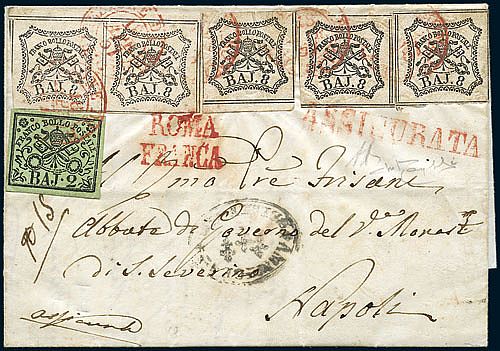 FRANCO BOLLO POSTALE FRANCO BOLLO POSTALE FRANCO BOLLO POSTALE FRANCO BOLLO POSTALE FRANCO BOLLO POSTALE
BAJ. 8 BAJ. 8 BAJ. 8 BAJ. 8 BAJ. 8
FRANCO BOLLO POSTALE
BAJ. 2
ROMA
FRANCA
ASSICURATA
Prē Frisari
Abbate di Governo del
di S. Severino
Napoli